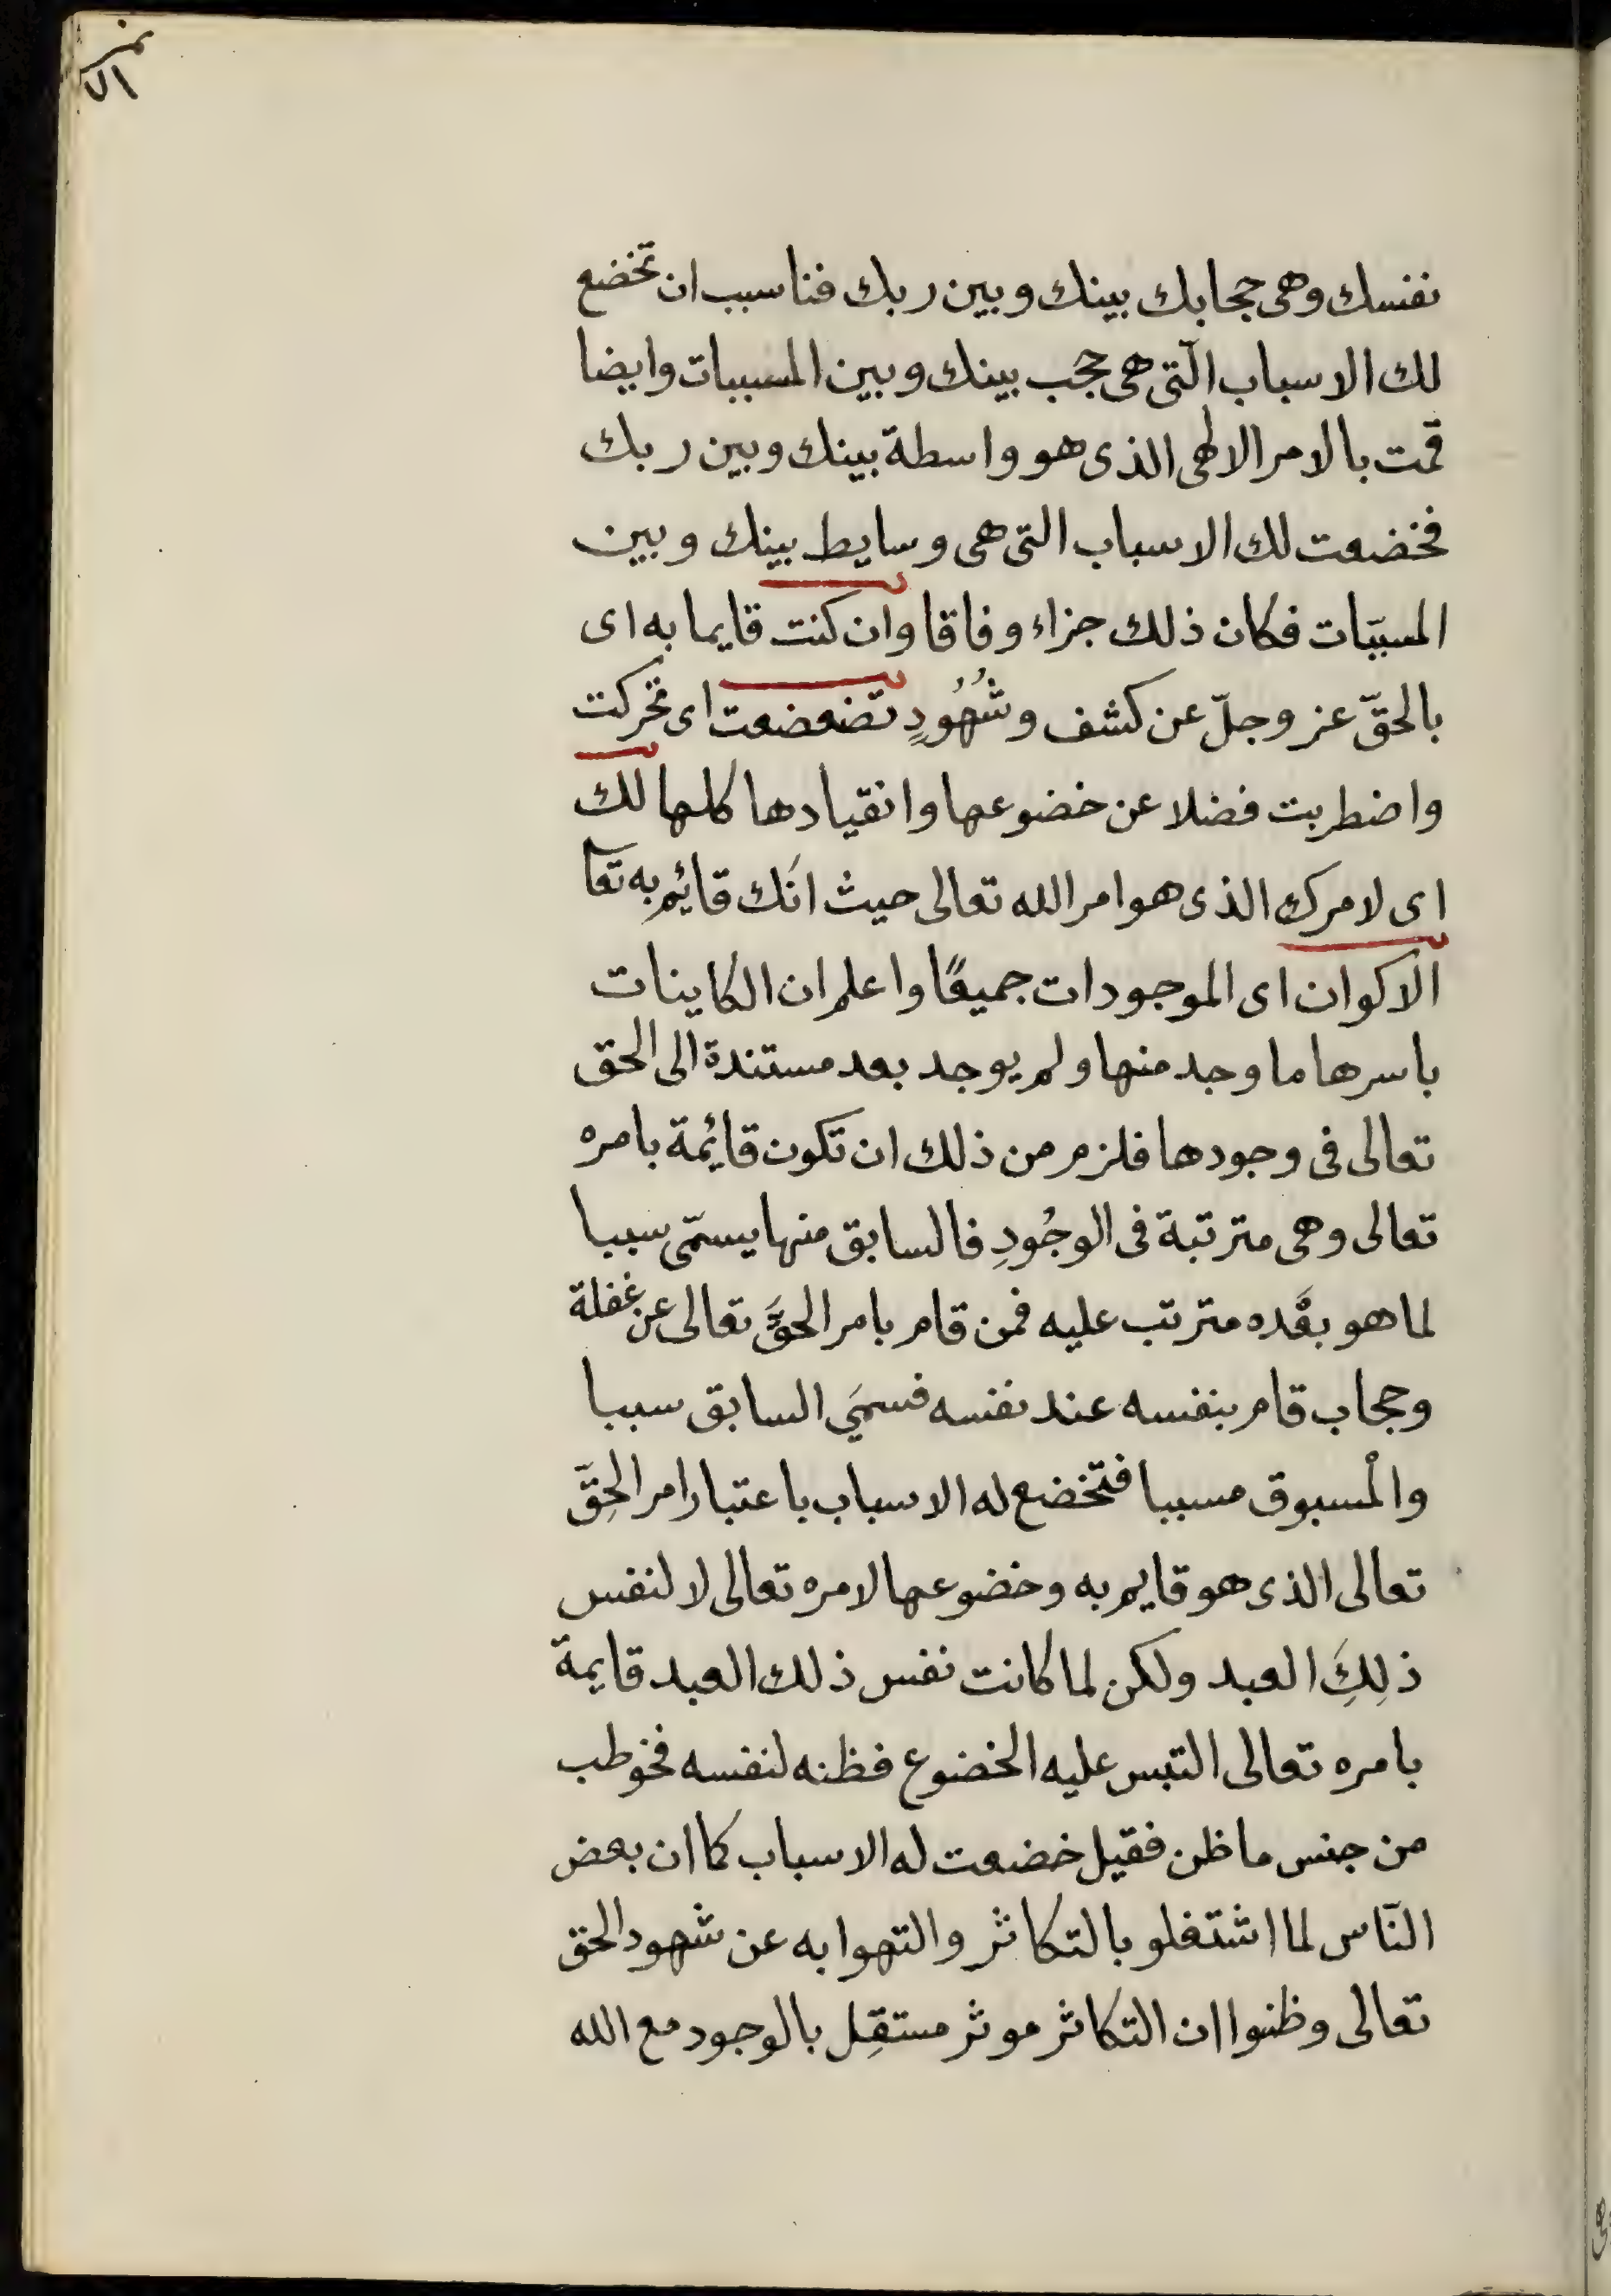 نمر
٧١
نفسك وهى حجابك بينك وبين ربك فناسبب ان تخضع
لك الاسباب الّتى هى حجَب بينك وبين المسببات وايضا
قمت بالامر الالهى الذى هو واسطة بينك وبين ربك
فخضعت لك الاسباب التى هى وسايط بينك وبين
المسبّبات فكان ذلك جزاء وفاقا وان كنت قايما به اى
بالحقّ عز وجلّ عن كشف وشُهُودٍ تضعضعت اى تحركت
واضطربت فضلا عن خضوعها وانقيادها كلها لك
اى لامرك الذى هو امر الله تعالى حيث انَك قائيم به تعا
الاكوان اى الموجودات جميعًا واعلم ان الكاينات
باسرها ما وجد منها ولم يوجد بعد مستندة الى الحق
تعالى فى وجودها فلزم من ذلك ان تكون قائيمة بامره
تعالى وهى مترتبة فى الوجُودِ فالسابق منها يسمّى سببا
لما هو بعْده مترتب عليه فمن قام بامر الحقَّ تعالى عن غفلة
وحجاب قام بنفسه عند نفسه فسميَ السابق سببا
والْمسبوق مسببا فتخضع له الاسباب باعتبار امر الحِقَّ
تعالى الذى هو قايم به وخضوعها لامره تعالى لا لنفس
ذلِكَِ العبد ولكن لما كانت نفس ذلك العبد قايمة
بامره تعالى التبس عليه الخضوع فظنه لنفسه فخوطب
من جنس ما ظن فقيل خضعت له الاسباب كما ان بعض
النّاس لما اشتغلو بالتكاثر والتهوا به عن شهود الحق
تعالى وظنوا ان التكاثر موثر مستقِل بالوجود مع الله